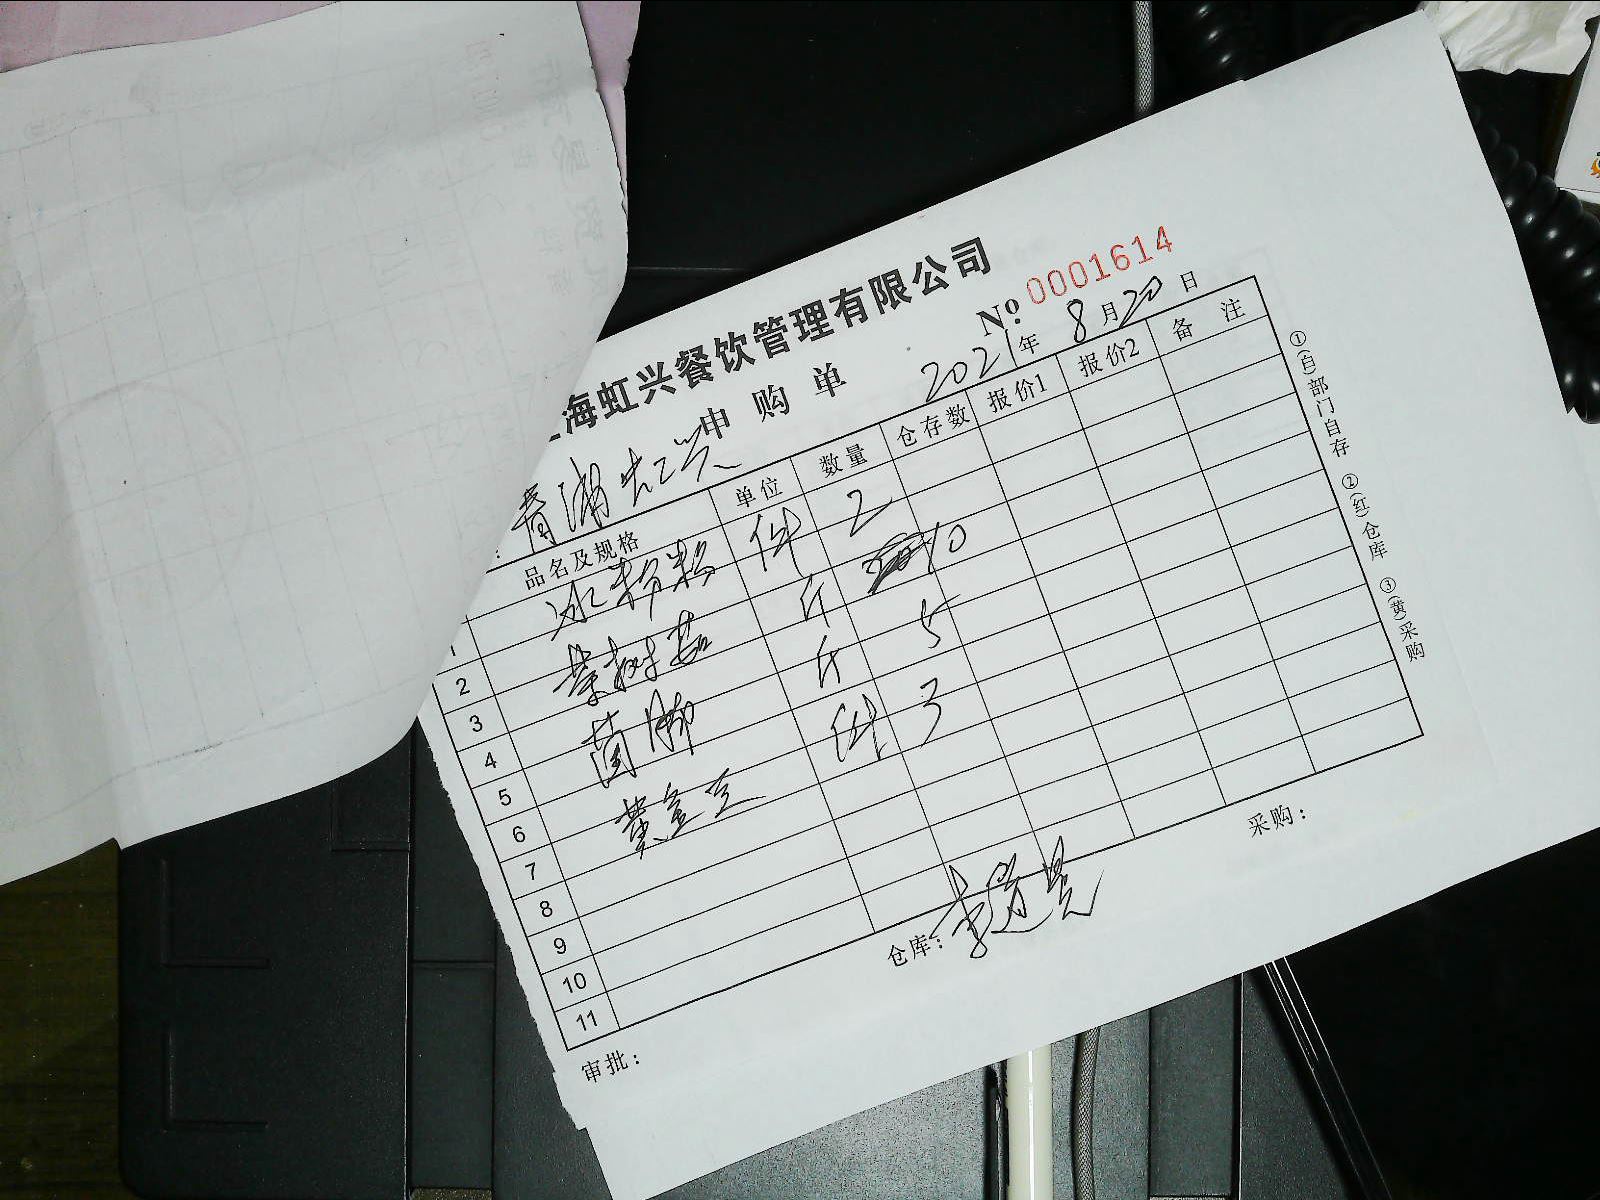 海虹兴餐饮管理有限公司
申购单
№ 0001614
青浦虹兴
2021年8月20日
品名及规格 单位 数量 仓存数 报价1 报价2 备注
1 冰粉粉 件 2
2 茶树菇 斤 10
3 菌脚 斤 5
4 件 3
5
6
7
8
9
10
11
审批：
仓库：李
采购：
①(白)部门自存 ②(红)仓库 ③(黄)采购